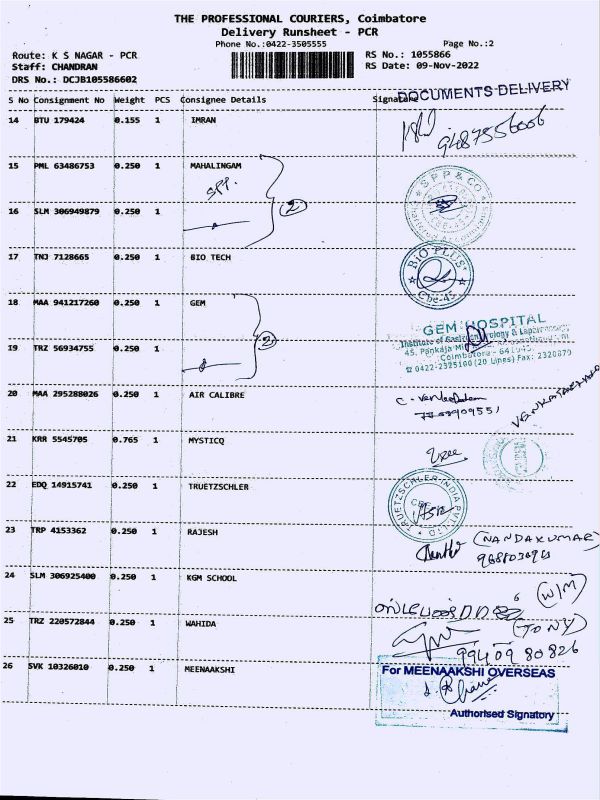 THE PROFESSIONAL COURIERS, Coimbatore
Delivery Runsheet - PCR
Phone No.:0422-3505555
Page No.:2
Route: K S NAGAR - PCR
RS No.: 1055866
Staff: CHANDRAN
RS Date: 09-Nov-2022
DRS No.: DCJB105586602
DOCUMENTS DELIVERY
S No Consignment No Weight PCS Consignee Details Signature
14 BTU 179424 0.155 1 IMRAN
9487556006
15 PML 63486753 0.250 1 MAHALINGAM
SPP.
SPP & CO
16 SLM 306949879 0.250 1
2
17 TNJ 7128665 0.250 1 BIO TECH
BIO PLUS
Cbe-45
18 MAA 941217260 0.250 1 GEM
GEM HOSPITAL
Institute of
19 TRZ 56934755 0.250 1
2
45, Pankaja
Coimbatore - 641045
0422-2325100 (20 Lines) Fax: 2320879
20 MAA 295288026 0.250 1 AIR CALIBRE
21 KRR 5545705 0.765 1 MYSTICQ
22 EDQ 14915741 0.250 1 TRUETZSCHLER
TRUETZSCHLER INDIA PVT LTD
23 TRP 4153362 0.250 1 RAJESH
(NANDAKUMAR)
24 SLM 306925400 0.250 1 KGM SCHOOL
(W/M)
25 TRZ 220572844 0.250 1 WAHIDA
(TONY)
9940980826
26 SVK 10326010 0.250 1 MEENAAKSHI
For MEENAAKSHI OVERSEAS
Authorised Signatory